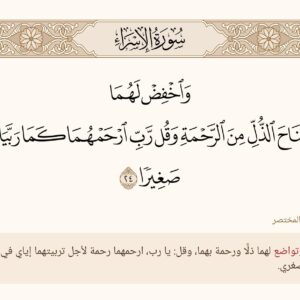 سُورَةُ الإِسْرَاءِ
وَٱخْفِضْ لَهُمَا
نَاحَ ٱلذُّلِّ مِنَ ٱلرَّحْمَةِ وَقُل رَّبِّ ٱرْحَمْهُمَا كَمَا رَبَّيَا
صَغِيرًا ٢٤
المختصر
تواضع لهما ذلًا ورحمة بهما، وقل: يا رب، ارحمهما رحمة لأجل تربيتهما إياي في
صغري.